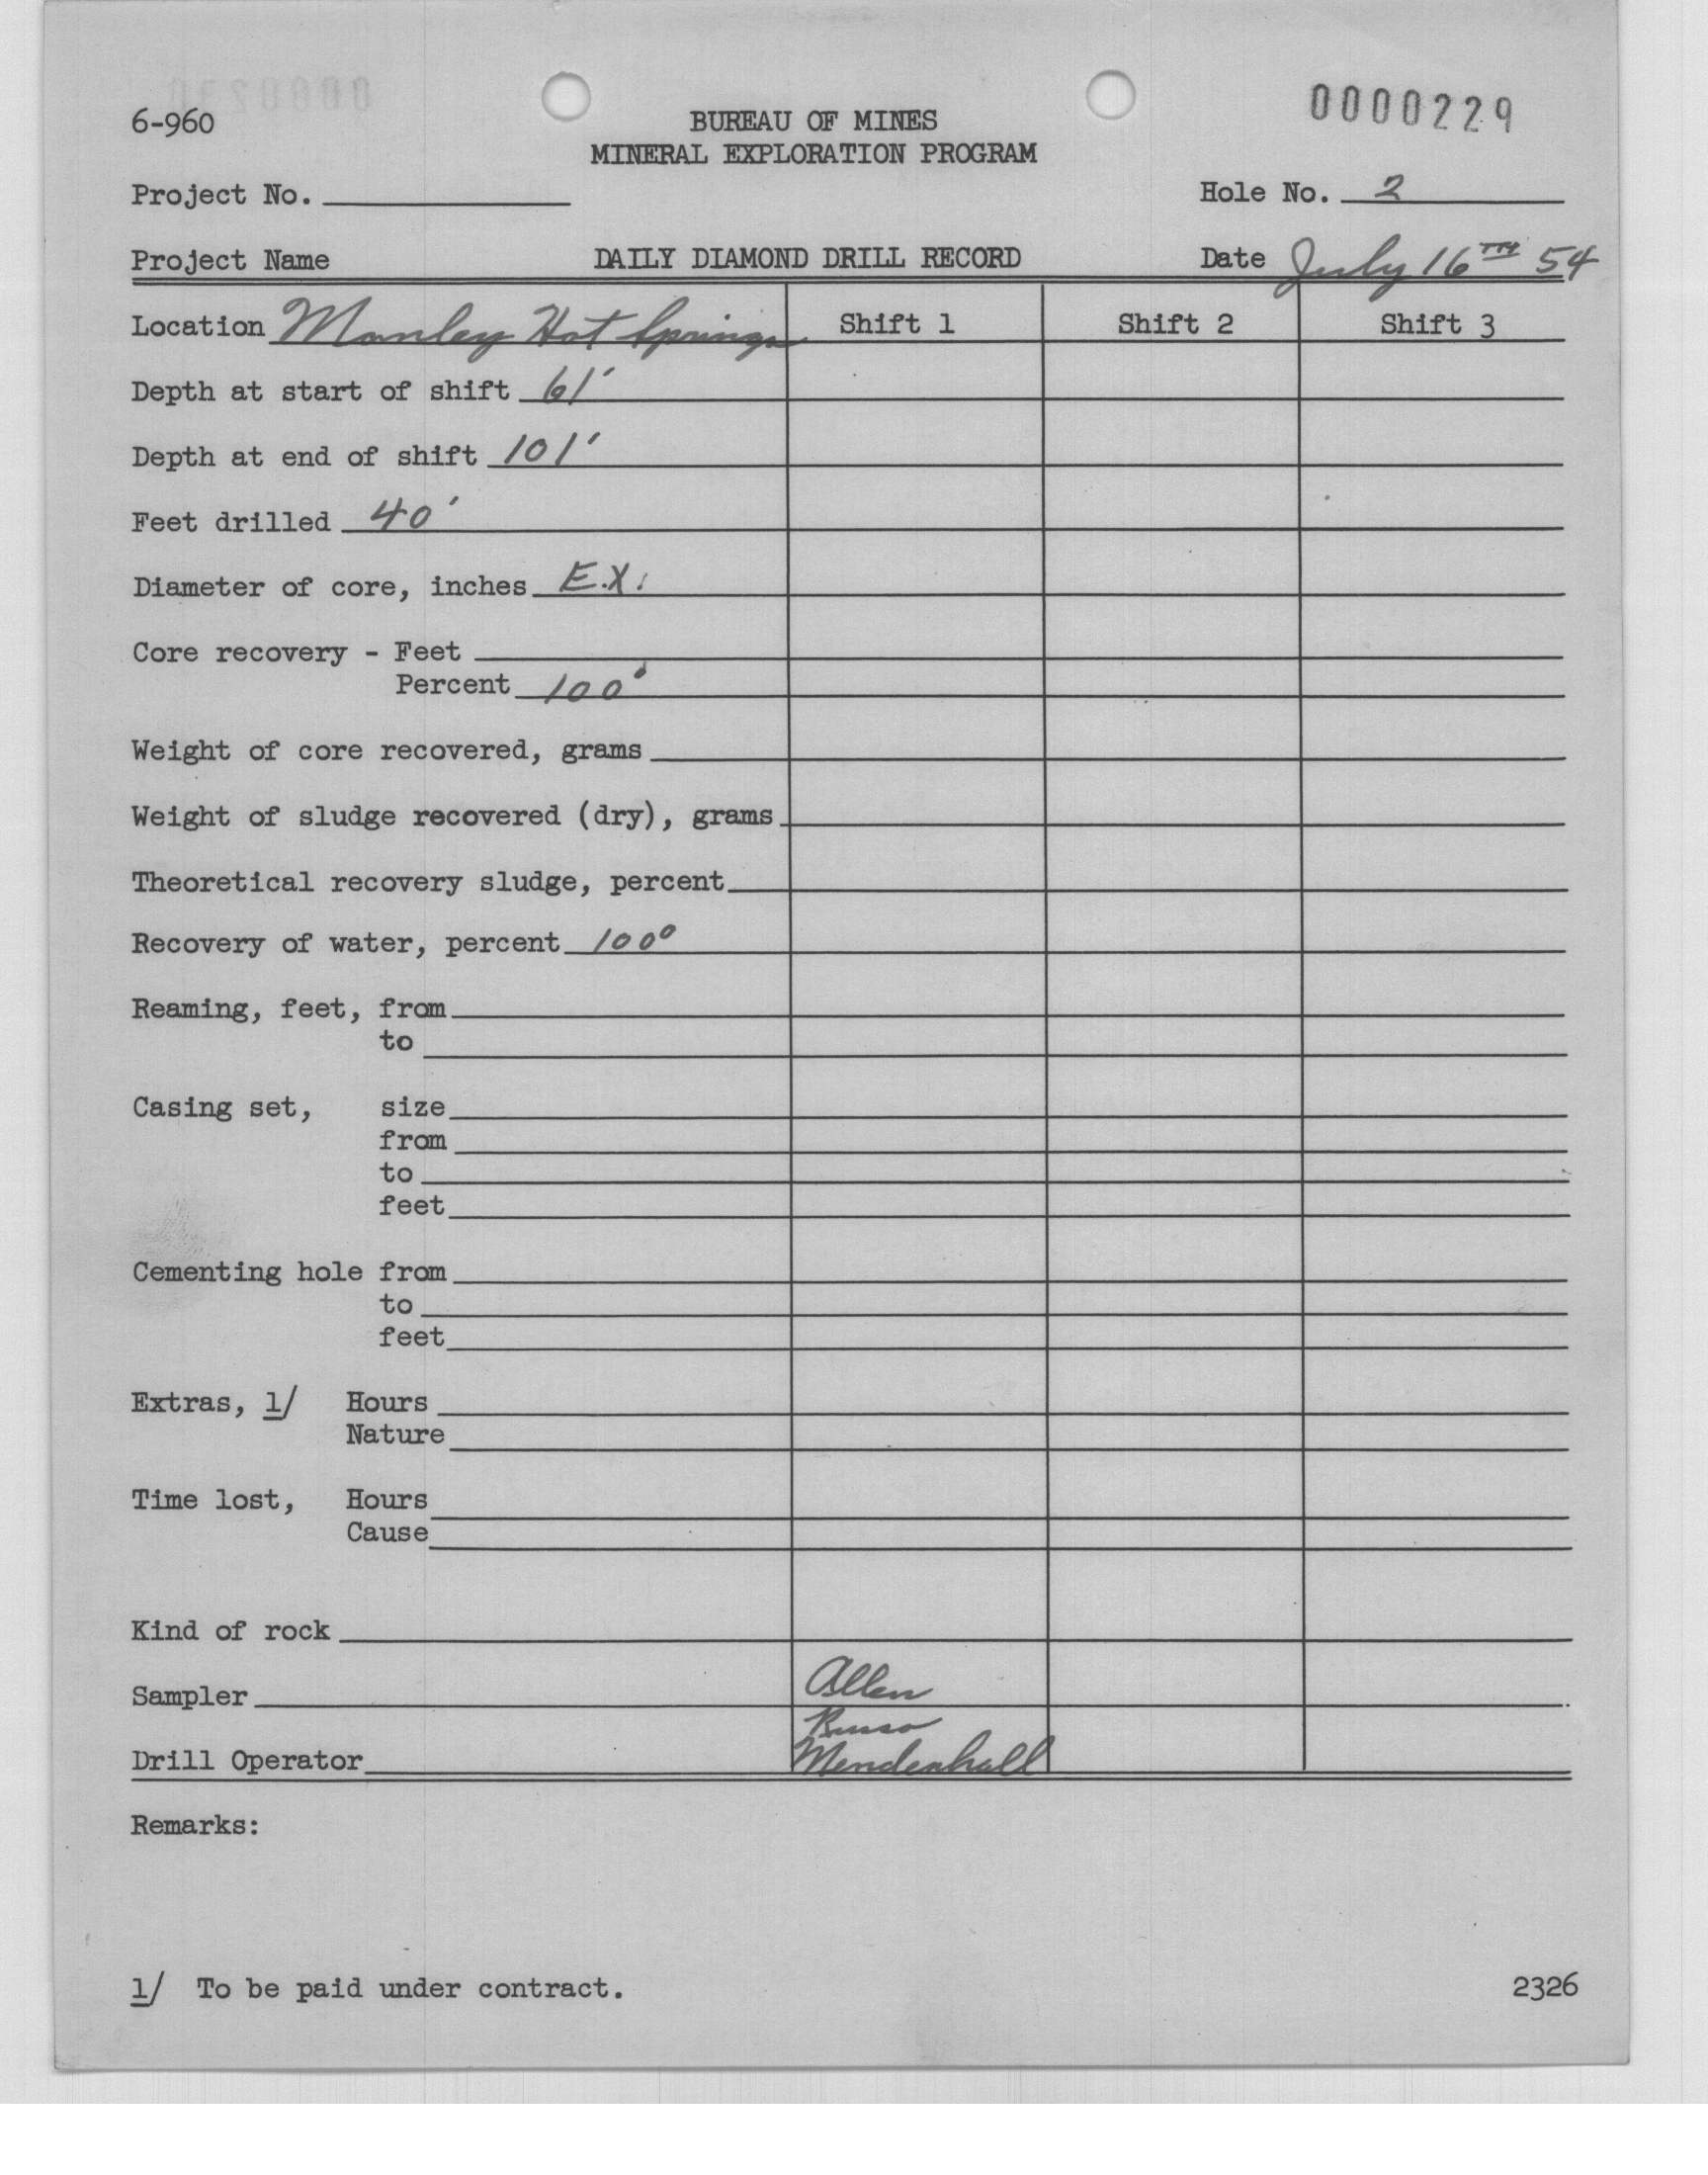 0000229
6-960 BUREAU OF MINES
MINERAL EXPLORATION PROGRAM
Project No. Hole No. 2
Project Name DAILY DIAMOND DRILL RECORD Date July 16TH 54
Location Manley Hot Springs Shift 1 Shift 2 Shift 3
Depth at start of shift 61'
Depth at end of shift 101'
Feet drilled 40'
Diameter of core, inches E.X.
Core recovery - Feet
Percent 100°
Weight of core recovered, grams
Weight of sludge recovered (dry), grams
Theoretical recovery sludge, percent
Recovery of water, percent 100°
Reaming, feet, from
to
Casing set, size
from
to
feet
Cementing hole from
to
feet
Extras, 1/ Hours
Nature
Time lost, Hours
Cause
Kind of rock
Sampler Allen
Russo
Drill Operator Mendenhall
Remarks:
1/ To be paid under contract. 2326